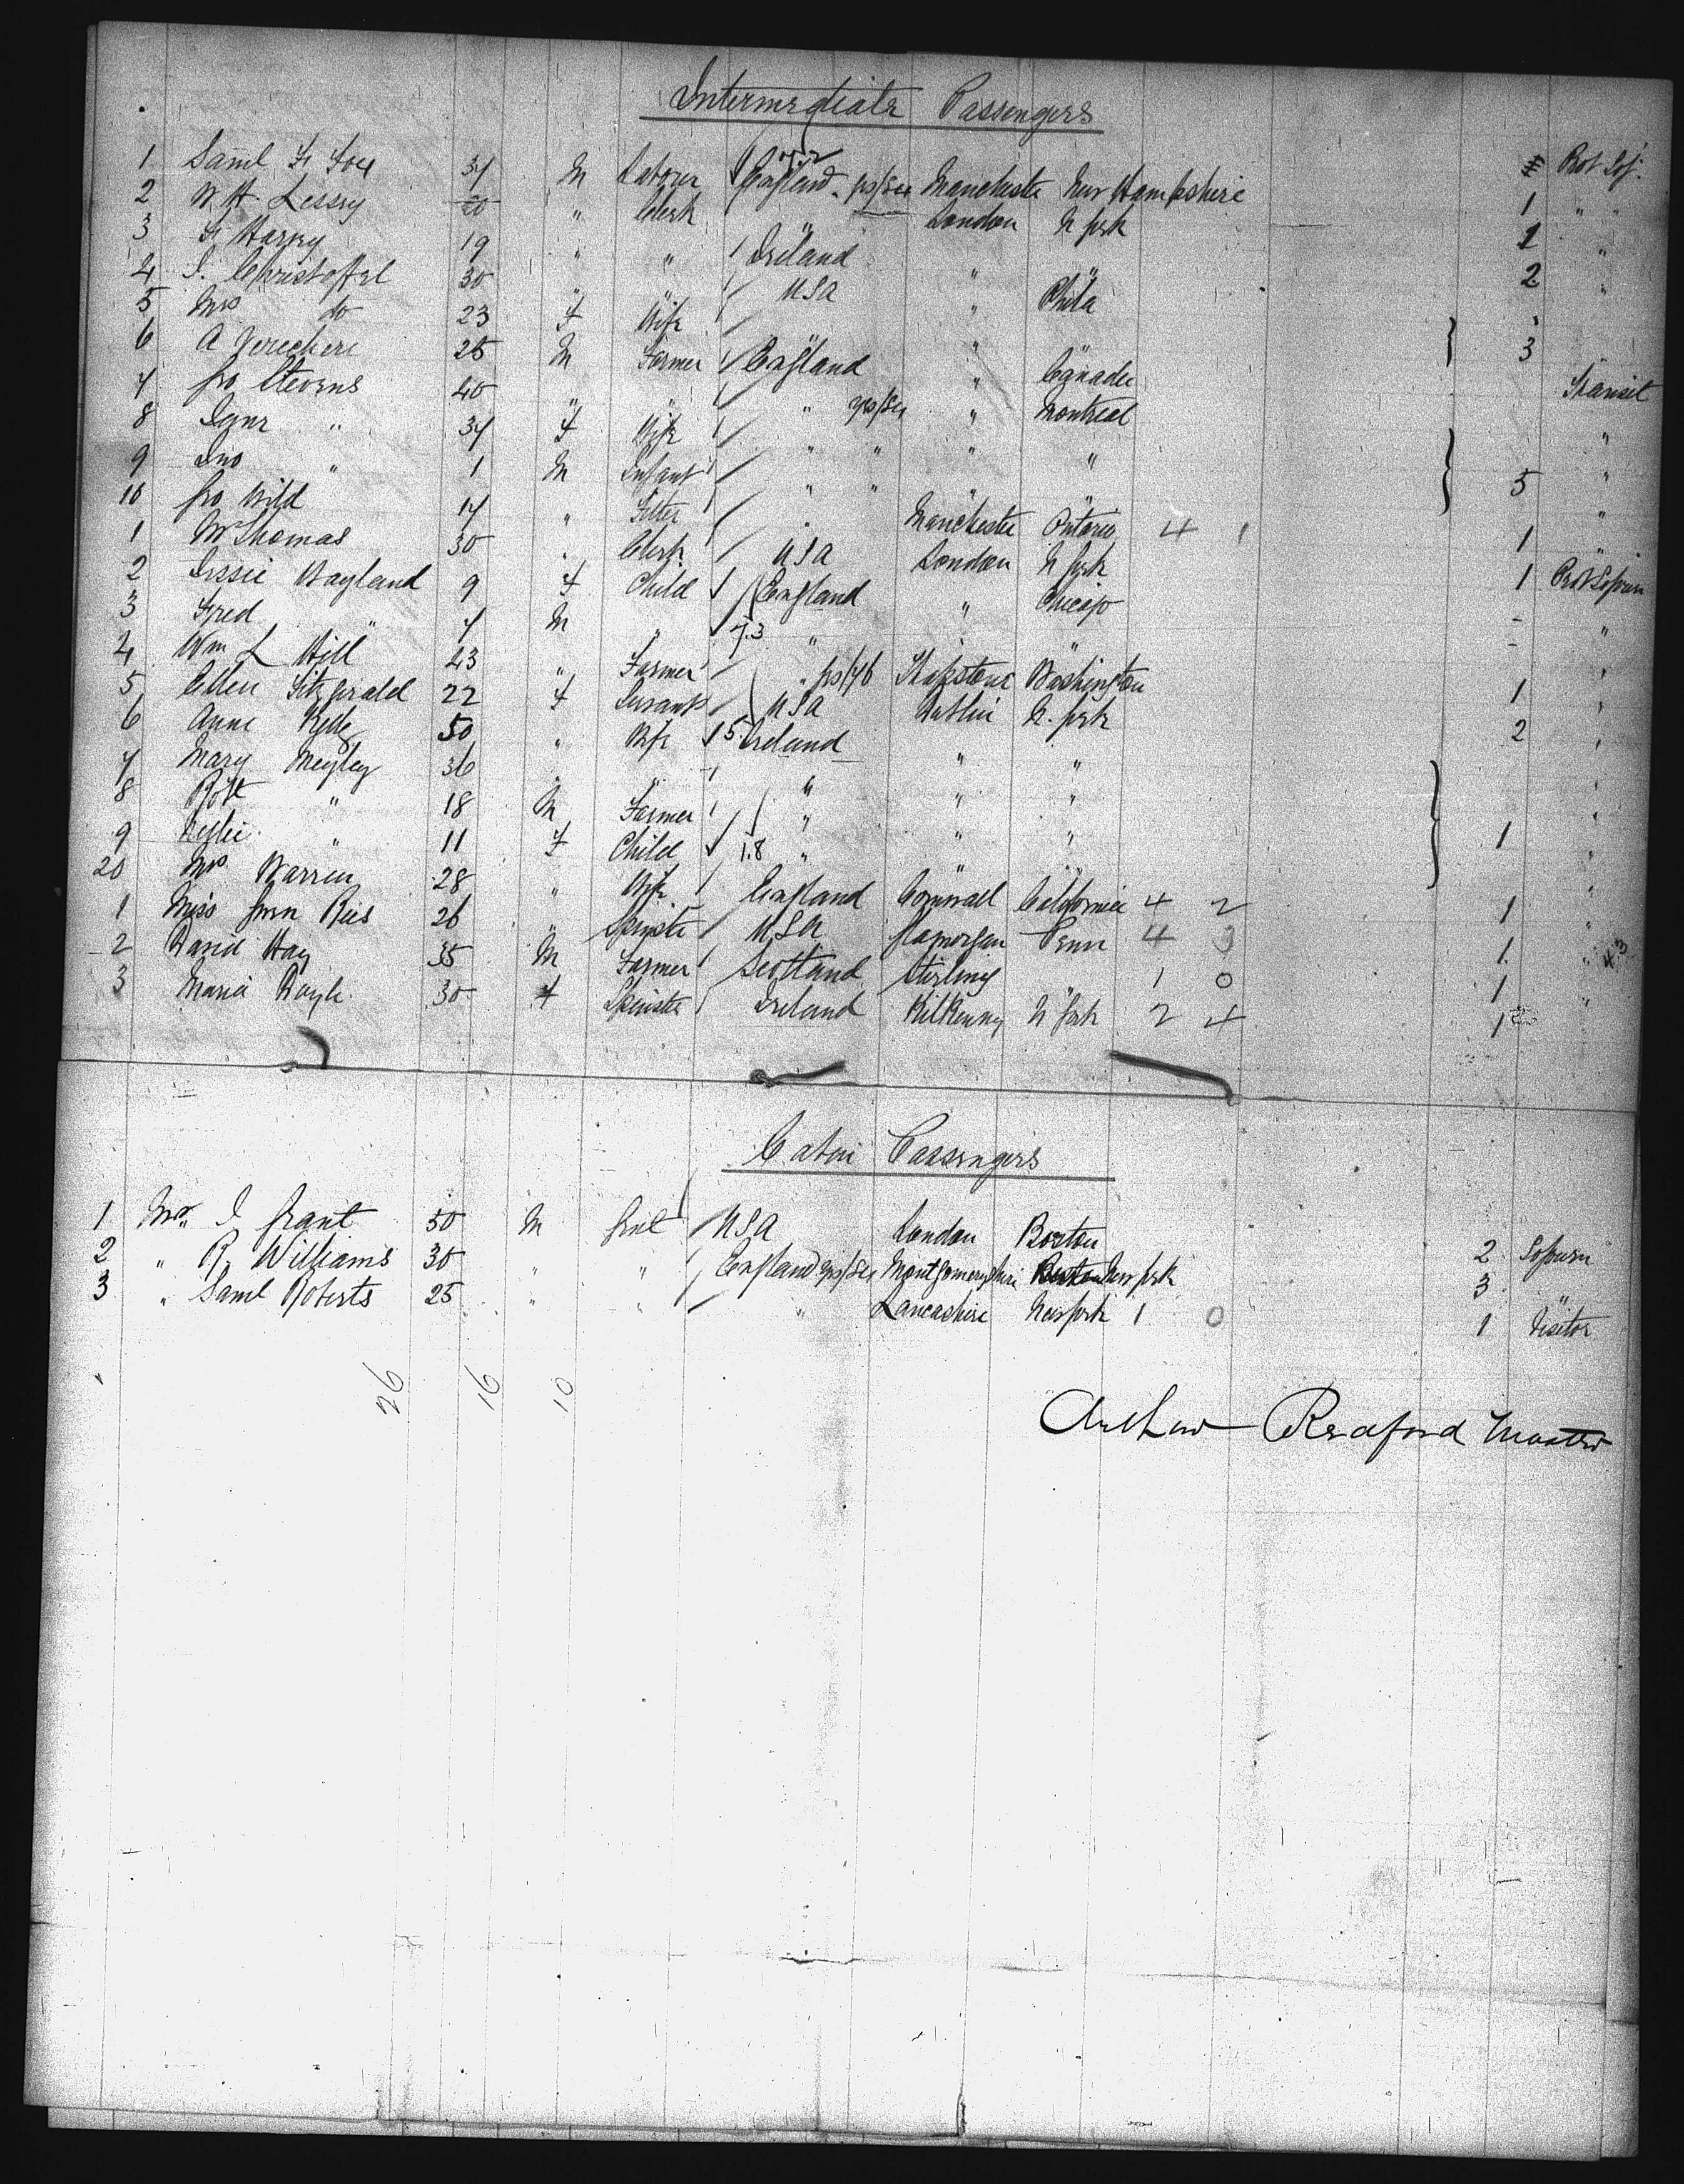 Intermediate Passengers
1 Saml F Foy 34 M Labour England Manchester New Hampshire Prot Soj.
2 W. H. Lessey Clerk " London N York 1 " "
3 19 " " Ireland " " 1 "
4 J. Christoffel 30 " " USA " Phila 2 "
5 Mrs do 23 F Wife " " "
6 A 25 M Farmer England " Canada 3 Transit
7 Geo Stevens 40 " " " " Montreal "
8 Jane " 34 F Wife " " " " "
9 Jno " 1 M Infant " " " " 5 "
10 Geo Wild 17 " Fitter " Manchester Ontario 4 1 1 "
1 W Thomas 30 " Clerk USA London N York 1 Prot Sojourn
2 Jessie Wayland 9 F Child England " Chicago - "
3 Fred " 7 M " 7.3 " " " - "
4 Wm L Hill 43 " Farmer " Washington 1 "
5 Ellen Fitzgerald 22 F Servant USA Dublin N. York 2 "
6 Anne 50 " Wife 5 Ireland " " "
7 Mary 36 " " " " " "
8 Robt " 18 M Farmer " " " 1 "
9 " 11 F Child 1.8 " " " "
20 Mrs Warren 28 " Wife England Cornwall California 4 2 1 "
1 Miss Gwen Rees 26 " Spinster USA Glamorgan Penn 4 3 1 "
2 David Hay 35 M Farmer Scotland Stirling 1 0 1 "
3 Maria Boyle 30 F Spinster Ireland Kilkenny N York 2 4 1
Cabin Passengers
1 Mr. J Grant 50 M Gent USA London Boston 2 Sojourn
2 " R. Williams 30 " " England Montgomeryshire New York 3 "
3 " Saml Roberts 25 " " " Lancashire New York 1 0 1 Visitor
26 16 10
Arthur Redford Master